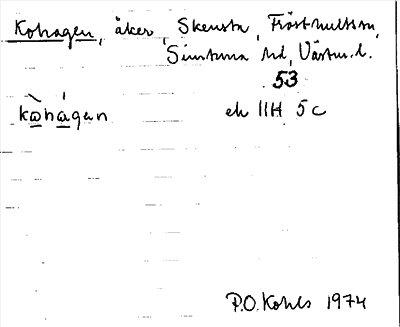 Kohagen, åker, Skensta, Fröshultssn,
Simtuna hd, Västm. l.
53
kòhágan ek 11H 5c
P.O. Kohls 1974